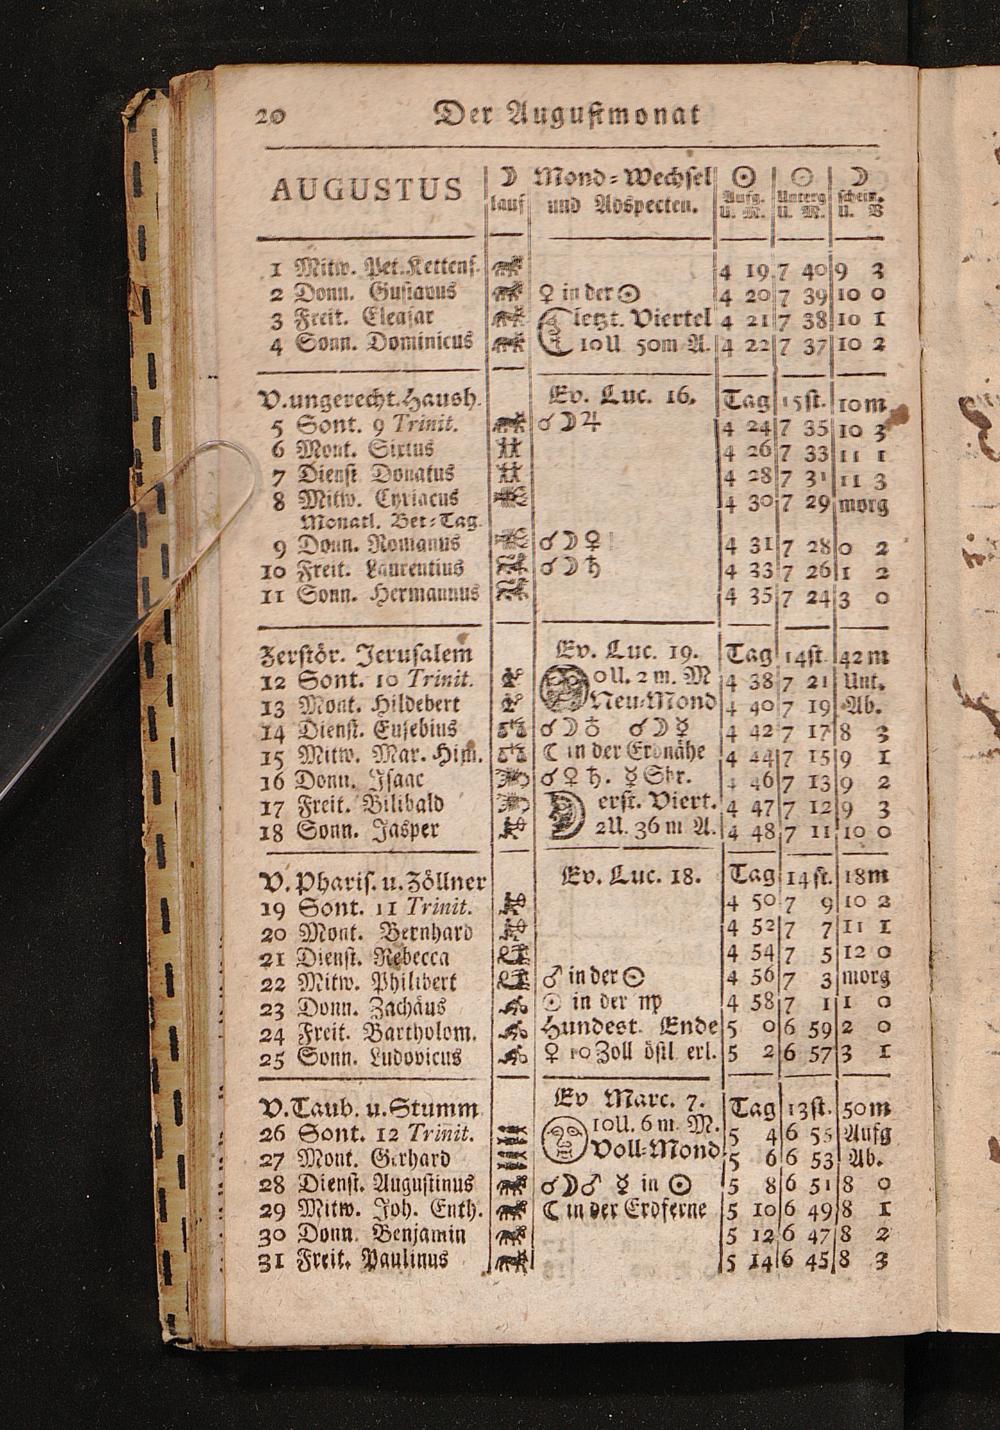 20 Der Augustmonat
AUGUSTUS ☽ lauf Mond-Wechsel und Adspecten. ☉ Aufg. U. M. ☉ Unterg U. M. ☽ schein. U. V
1 Mitw. Pet. Kettenf. 4 19 7 40 9 3
2 Donn. Gustavus ♀ in der ☉ 4 20 7 39 10 0
3 Freit. Eleasar letzt. Viertel 4 21 7 38 10 1
4 Sonn. Dominicus 10U 50m A. 4 22 7 37 10 2
V. ungerecht. Haush. Ev. Luc. 16. Tag 15st. 10m
5 Sont. 9 Trinit. ☌☽♃ 4 24 7 35 10 3
6 Mont. Sixtus 4 26 7 33 11 1
7 Dienst Donatus 4 28 7 31 11 3
8 Mitw. Cyriacus 4 30 7 29 morg
Monatl. Bet-Tag.
9 Donn. Romanus ☌☽♀ 4 31 7 28 0 2
10 Freit. Laurentius ☌☽♄ 4 33 7 26 1 2
11 Sonn. Hermannus 4 35 7 24 3 0
Zerstör. Jerusalem Ev. Luc. 19. Tag 14st. 42m
12 Sont. 10 Trinit. 0U. 2m. M 4 38 7 21 Unt.
13 Mont. Hildebert Neu-Mond 4 40 7 19 Ab.
14 Dienst. Eusebius ☌☽♁ ☌☽☿ 4 42 7 17 8 3
15 Mitw. Mar. Him. ☾ in der Erdnähe 4 44 7 15 9 1
16 Donn. Isaac ☌♀♄. ☿ Sbr. 4 46 7 13 9 2
17 Freit. Bilibald erst. Viert. 4 47 7 12 9 3
18 Sonn. Jasper 2U. 36m A. 4 48 7 11 10 0
V. Pharis. u. Zöllner Ev. Luc. 18. Tag 14st. 18m
19 Sont. 11 Trinit. 4 50 7 9 10 2
20 Mont. Bernhard 4 52 7 7 11 1
21 Dienst. Rebecca 4 54 7 5 12 0
22 Mitw. Philibert ♂ in der ☉ 4 56 7 3 morg
23 Donn. Zachäus ☉ in der ♍ 4 58 7 1 1 0
24 Freit. Bartholom. Hundest. Ende 5 0 6 59 2 0
25 Sonn. Ludovicus ♀ 10 Zoll östl erl. 5 2 6 57 3 1
V. Taub. u. Stumm Ev Marc. 7. Tag 13st. 50m
26 Sont. 12 Trinit. 10U. 6m. M. 5 4 6 55 Aufg
27 Mont. Gerhard Voll-Mond 5 6 6 53 Ab.
28 Dienst. Augustinus ☌☽♂ ☿ in ☉ 5 8 6 51 8 0
29 Mitw. Joh. Enth. ☾ in der Erdferne 5 10 6 49 8 1
30 Donn. Benjamin 5 12 6 47 8 2
31 Freit. Paulinus 5 14 6 45 8 3